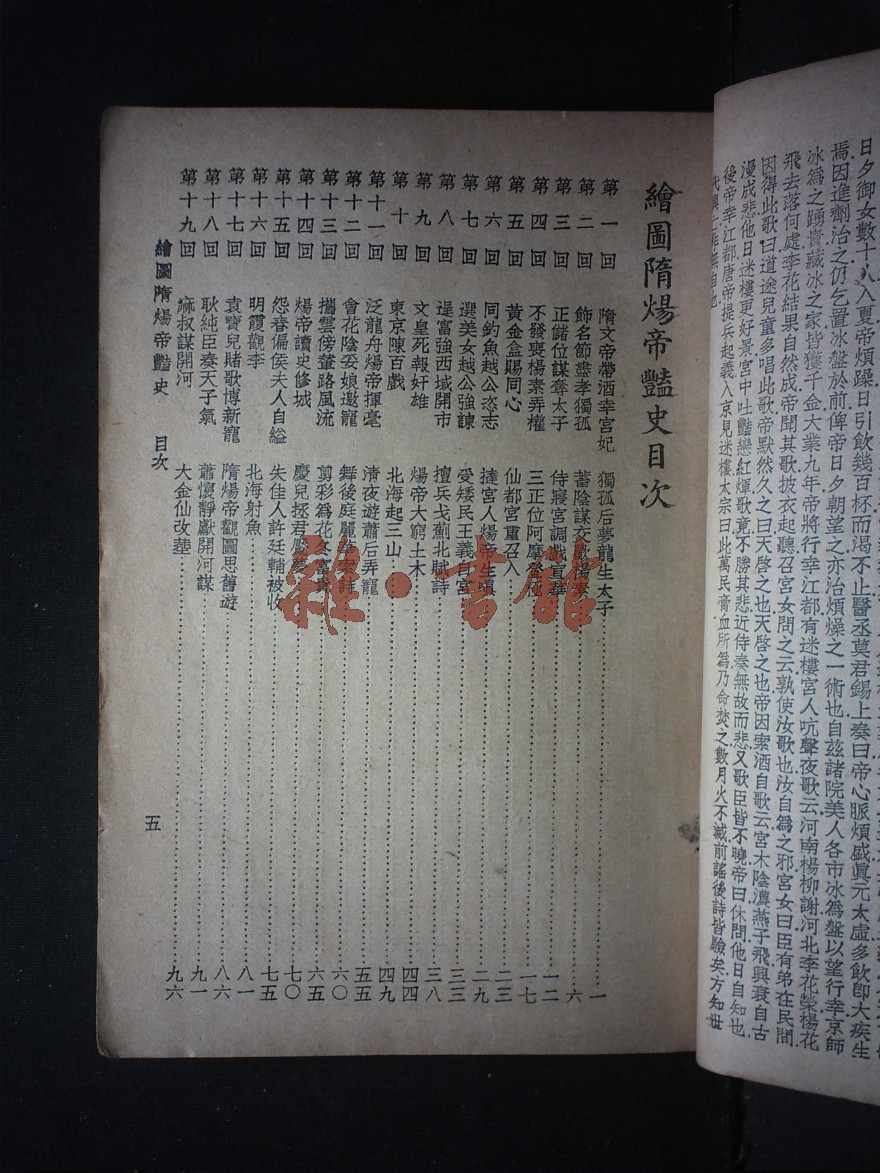 日夕御女數十人入夏帝煩躁日引飲幾百杯而渴不止醫丞莫君錫上奏曰帝心脈煩盛眞元太虛多飲卽大疾生
焉因進劑治之仍乞置冰盤於前俾帝日夕朝望之亦治煩燥之一術也自茲諸院美人各市冰爲盤以望行幸京師
冰爲之踴貴藏冰之家皆獲千金大業九年帝將行幸江都有迷樓宮人吭聲夜歌云河南楊柳謝河北李花榮楊花
飛去落何處李花結果自然成帝聞其歌披衣起聽召宮女問之云孰使汝歌也汝自爲之邪宮女曰臣有弟在民間
因得此歌曰道途兒童多唱此歌帝默然久之曰天啓之也天啓之也帝因索酒自歌云宮木陰濃燕子飛興衰自古
漫成悲他日迷樓更好景宮中吐豔戀紅煇歌竟不勝其悲近侍奏無故而悲又歌臣皆不曉帝曰休問他日自知也
後帝幸江都唐帝提兵起義入京見迷樓太宗曰此萬民膏血所爲乃命焚之數月火不滅前謠後詩皆驗矣方知世
代興亡非無自也
繪圖隋煬帝豔史目次
第一回 隋文帝帶酒幸宮妃 獨孤后夢龍生太子 一
第二回 飾名節盡孝獨孤 蓄陰謀交歡楊素 六
第三回 正儲位謀奪太子 侍寢宮調戲宣華 一二
第四回 不發喪楊素弄權 三正位阿摩登極 一七
第五回 黃金盒賜同心 仙都宮重召入 二三
第六回 同釣魚越公恣志 撻宮人煬帝生嗔 二九
第七回 選美女越公強諫 受矮民王義自宮 三三
第八回 逞富強西域開市 擅兵戈薊北賦詩 三八
第九回 文皇死報奸雄 煬帝大窮土木 四四
第十回 東京陳百戲 北海起三山 四九
第十一回 泛龍舟煬帝揮毫 淸夜遊蕭后弄寵 五五
第十二回 會花陰妥娘邀寵 舞後庭麗華索詩 六〇
第十三回 攜雲傍輦路風流 剪彩爲花冬富春 六五
第十四回 煬帝讀史修城 慶兒拯君魘夢 七〇
第十五回 怨春偏侯夫人自縊 失佳人許廷輔被收 七五
第十六回 明霞觀李 北海射魚 八一
第十七回 袁寶兒賭歌博新寵 隋煬帝觀圖思舊遊 八六
第十八回 耿純臣奏天子氣 蕭懷靜獻開河謀 九一
第十九回 麻叔謀開河 大金仙改塟 九六
繪圖隋煬帝豔史 目次 五
雜·書館